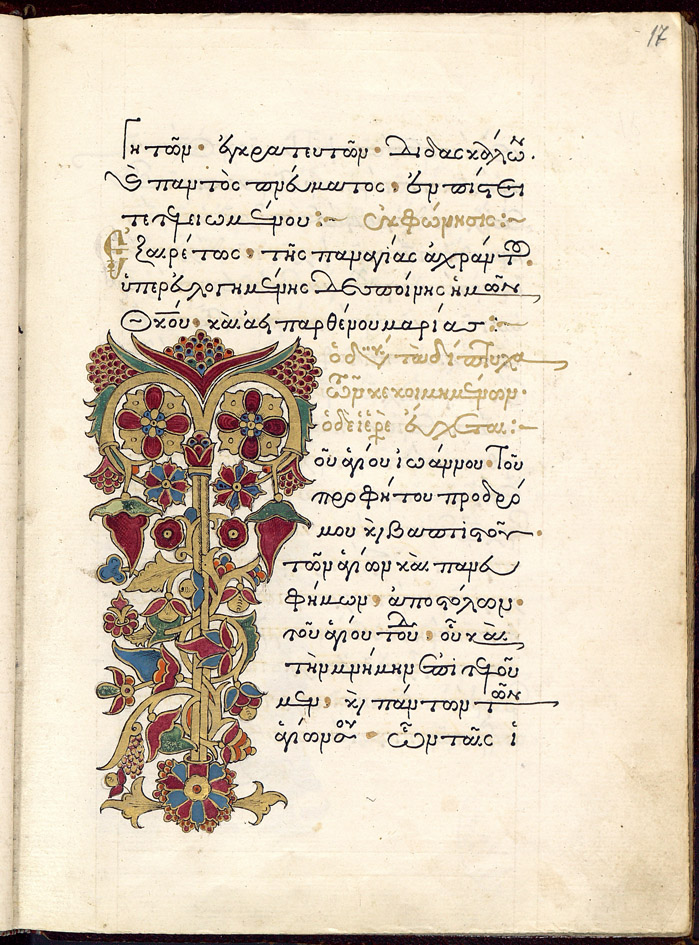 17
γητῶν· ἐγκρατευτῶν· διδασκάλων·
ϗ παντὸς πνύματος, ἐν πίστει
τετελειωμένου:~ ἐκφώνησις:~
Ἐξαιρέτως, τῆς παναγίας ἀχράντου·
ὑπερευλογημένης δεσποίνης ἡμῶν
Θκου· καὶ ἀειπαρθένου μαρίας:~
ὁ δ τὰ δίπτυχα
τῶν κεκοιμημένων·
ὁ δὲ ἱερε εὔχεται:~
Τοῦ ἁγίου ἰωάννου· τοῦ
προφήτου προδρό
μου ϗ βαπτιστοῦ·
τῶν ἁγίων καὶ πανευ
φήμων· ἀποστόλων·
τοῦ ἁγίου τοῦδ· οὗ καὶ
τὴν μνήμην ἐπιτελοῦ
μεν· ϗ πάντων τῶν
ἁγίων σου· ὧν ταῖς ἱ